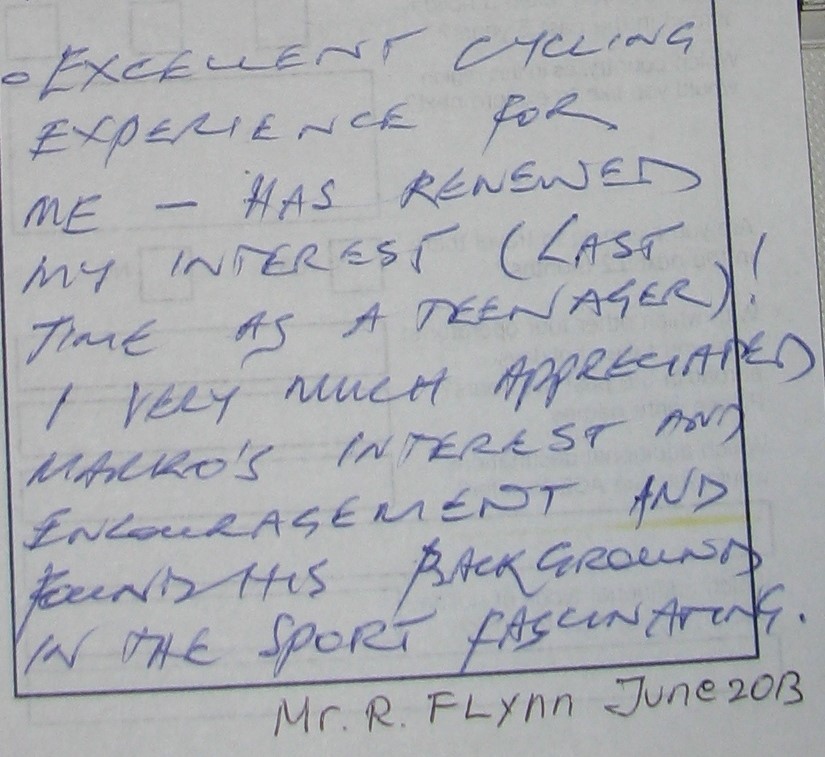 EXCELLENT CYCLING
EXPERIENCE FOR
ME - HAS RENEWED
MY INTEREST (LAST
TIME AS A TEENAGER)!
I VERY MUCH APPRECIATED
MARKO'S INTEREST AND
ENCOURAGEMENT AND
FOUND HIS BACKGROUND
IN THE SPORT FASCINATING.
Mr. R. FLynn June 2013